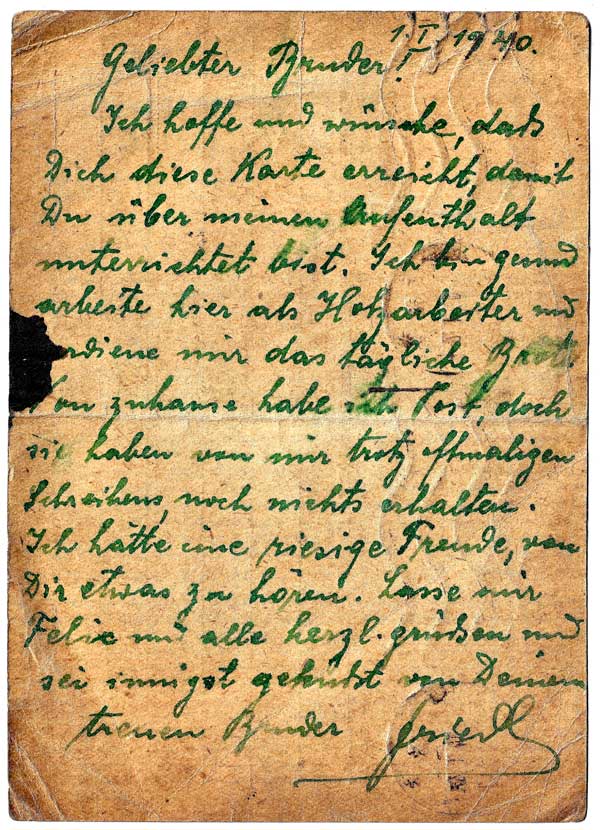 1.I.1940.
Geliebter Bruder!
Ich hoffe und wünsche, daß
Dich diese Karte erreicht, damit
Du über meinen Aufenthalt
unterrichtet bist. Ich bin gesund
arbeite hier als Holzarbeiter und
rdiene mir das tägliche Brot.
Von zuhause habe ich Post, doch
sie haben von mir trotz oftmaligen
Schreibens, noch nichts erhalten.
Ich hätte eine riesige Freude, von
Dir etwas zu hören. Lasse mir
Felix und alle herzl. grüßen und
sei innigst geküßt von Deinem
treuen Bruder Friedl